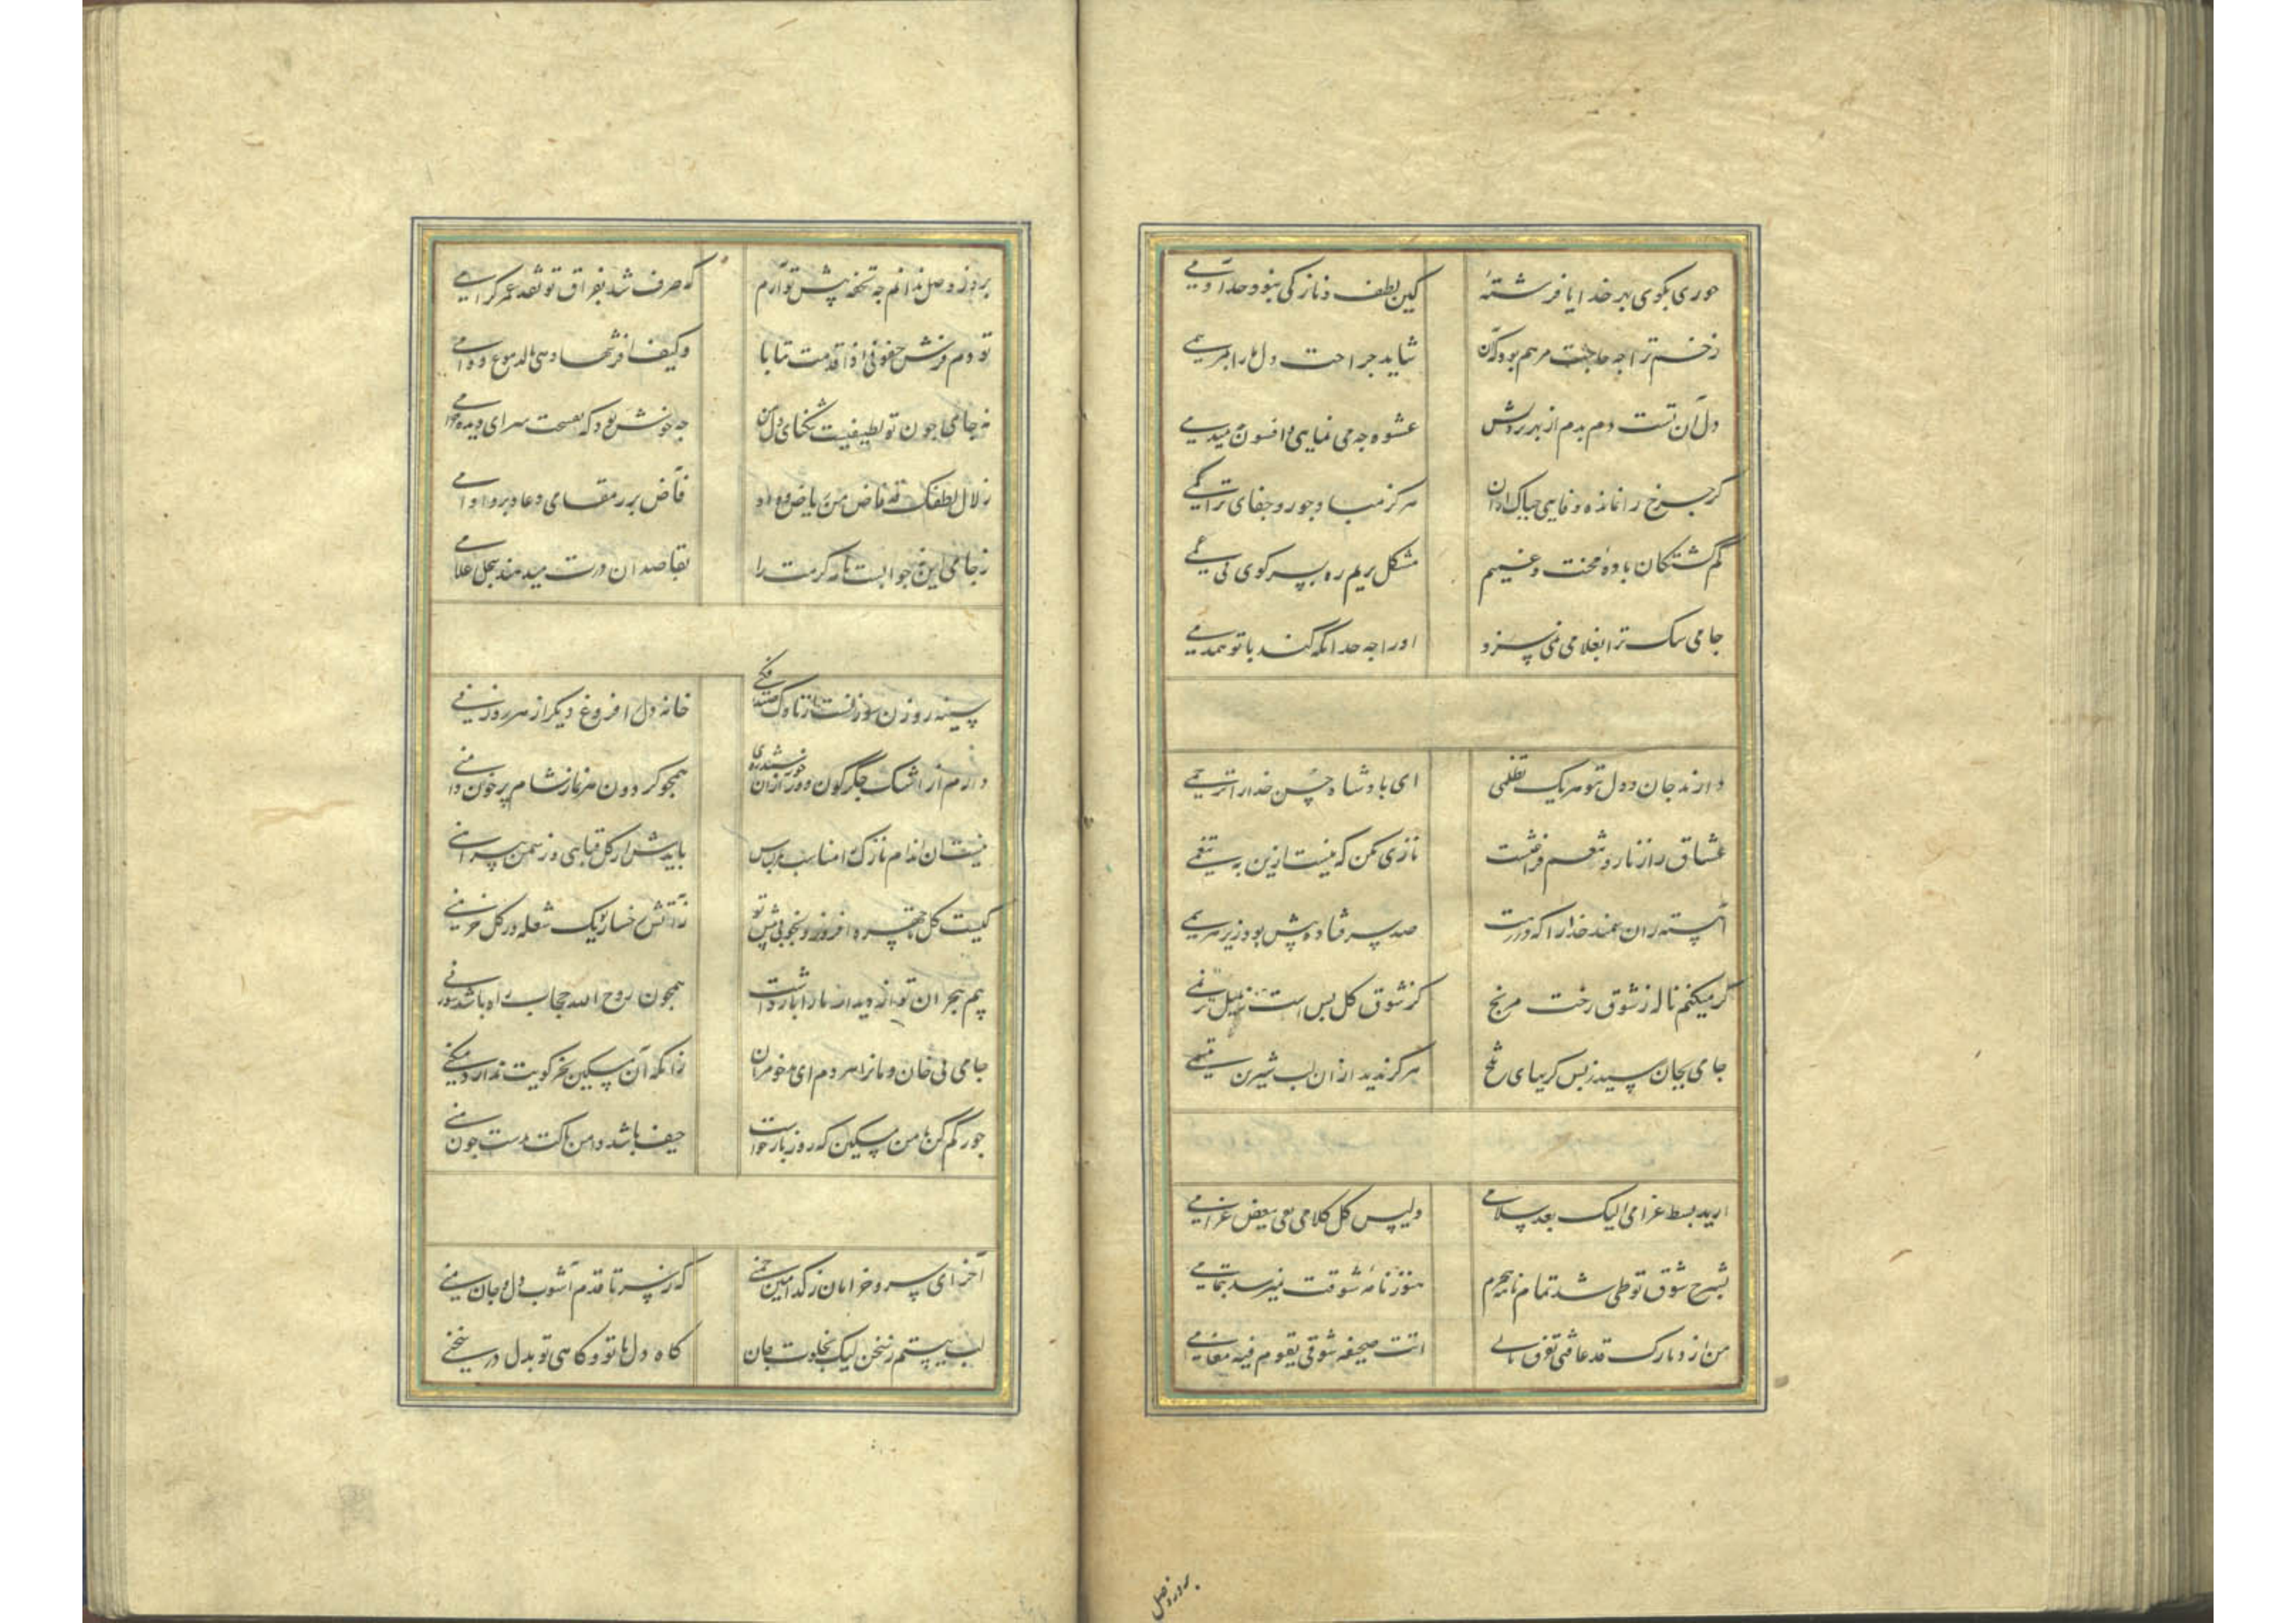 حوری بکوی بهر خدا یا فرشتهٔ کین لطف و نازکی نبود حد آدمی
زخم ترا چه حاجت مرهم بود که آن شاید جراحت دل ما را بمرهمی
دل آن تست دم بدم از بهر بردنش عشوه چه می نمایی و افسون چه میدمی
کر چرخ را نمانده وفایی چه باک از آن هرکز مباد جور و جفای ترا کمی
کم کشتکان بادیه محنت و غمیم مشکل بریم ره بسر کوی بی غمی
جامی سک ترا بغلامی نمی سزد او را چه حد انکه کند با تو همدمی
دارند جان و دل ز تو هر یک تظلمی ای پادشاه حسن خدا را ترحمی
عشاق را ز ناز و تنعم فراغتست نازی بکن که نیست ازین به تنعمی
آهسته ران سمند خدا را که در رهت صد سر فتاده پیش بود زیر هر سمی
کر میکنم ناله ز شوق رخت مرنج کز شوق کل بس است ز بلبل ترنمی
جامی بجان رسید ز بس کریهای تلخ هرکز ندید از آن لب شیرین تبسمی
ارید بسط غرامی الیک بعد سلامی ولیس کل کلامی یفی ببعض غرامی
بشرح شوق تو طی شد تمام نامه عمرم هنوز نامهٔ شوقت نمیرسد بتمامی
من از دیارک قد عاقنی تفرق بالی اتت صحیفه شوقی یقوم فیه مقامی
بروز وصل
بروز وصل ندانم چه تحفه پیش تو آرم که صرف شد بفراق تو نقد عمر کرامی
تو دم فرش جفونی اذا قدمت تبابا وکیف افرشها وهی بالدموع دوامی
نه جای چون تو لطیفیست تنکنای دل من چه خوش بود که بصحن سرای دیده خرامی
زلال لطفک قد فاض من ریاض وداد
ز جامی این نه جوابست نامه کرمت را بقاصدان درت میدهند سجل غلامی
خانه دل را فروغ دیکر از هر روزنی
دارم از اشک جکرکون دور از آن خورشیدروی همچو کردون هر نماز شام پر خون دامنی
نیست آن اندام نازک را مناسب هر لباس بایدش از کل قبایی وز سمن پیراهنی
کیست کل تا چهره افروزد بخوبی پیش تو ز آتش رخسار تو یک شعله در کل خرمنی
بیم هجران تو از دیدار ما را باز داشت همچون روح الله حجاب راه باشد سوزنی
جامی بی خان و مانرا هر دم ای مه خو مران زانکه آن مسکین بجز کویت ندارد مسکنی
جور کم کن با من مسکین که روز بازخواست حیف باشد دامن پاکت بدست چون منی
آخر ای سرو خرامان ز کدامین چمنی که ز سر تا قدم آشوب دل و جان منی
لب ببستم ز سخن لیک بخلوت جان کاه دل با تو و کاهی تو بدل در سخنی